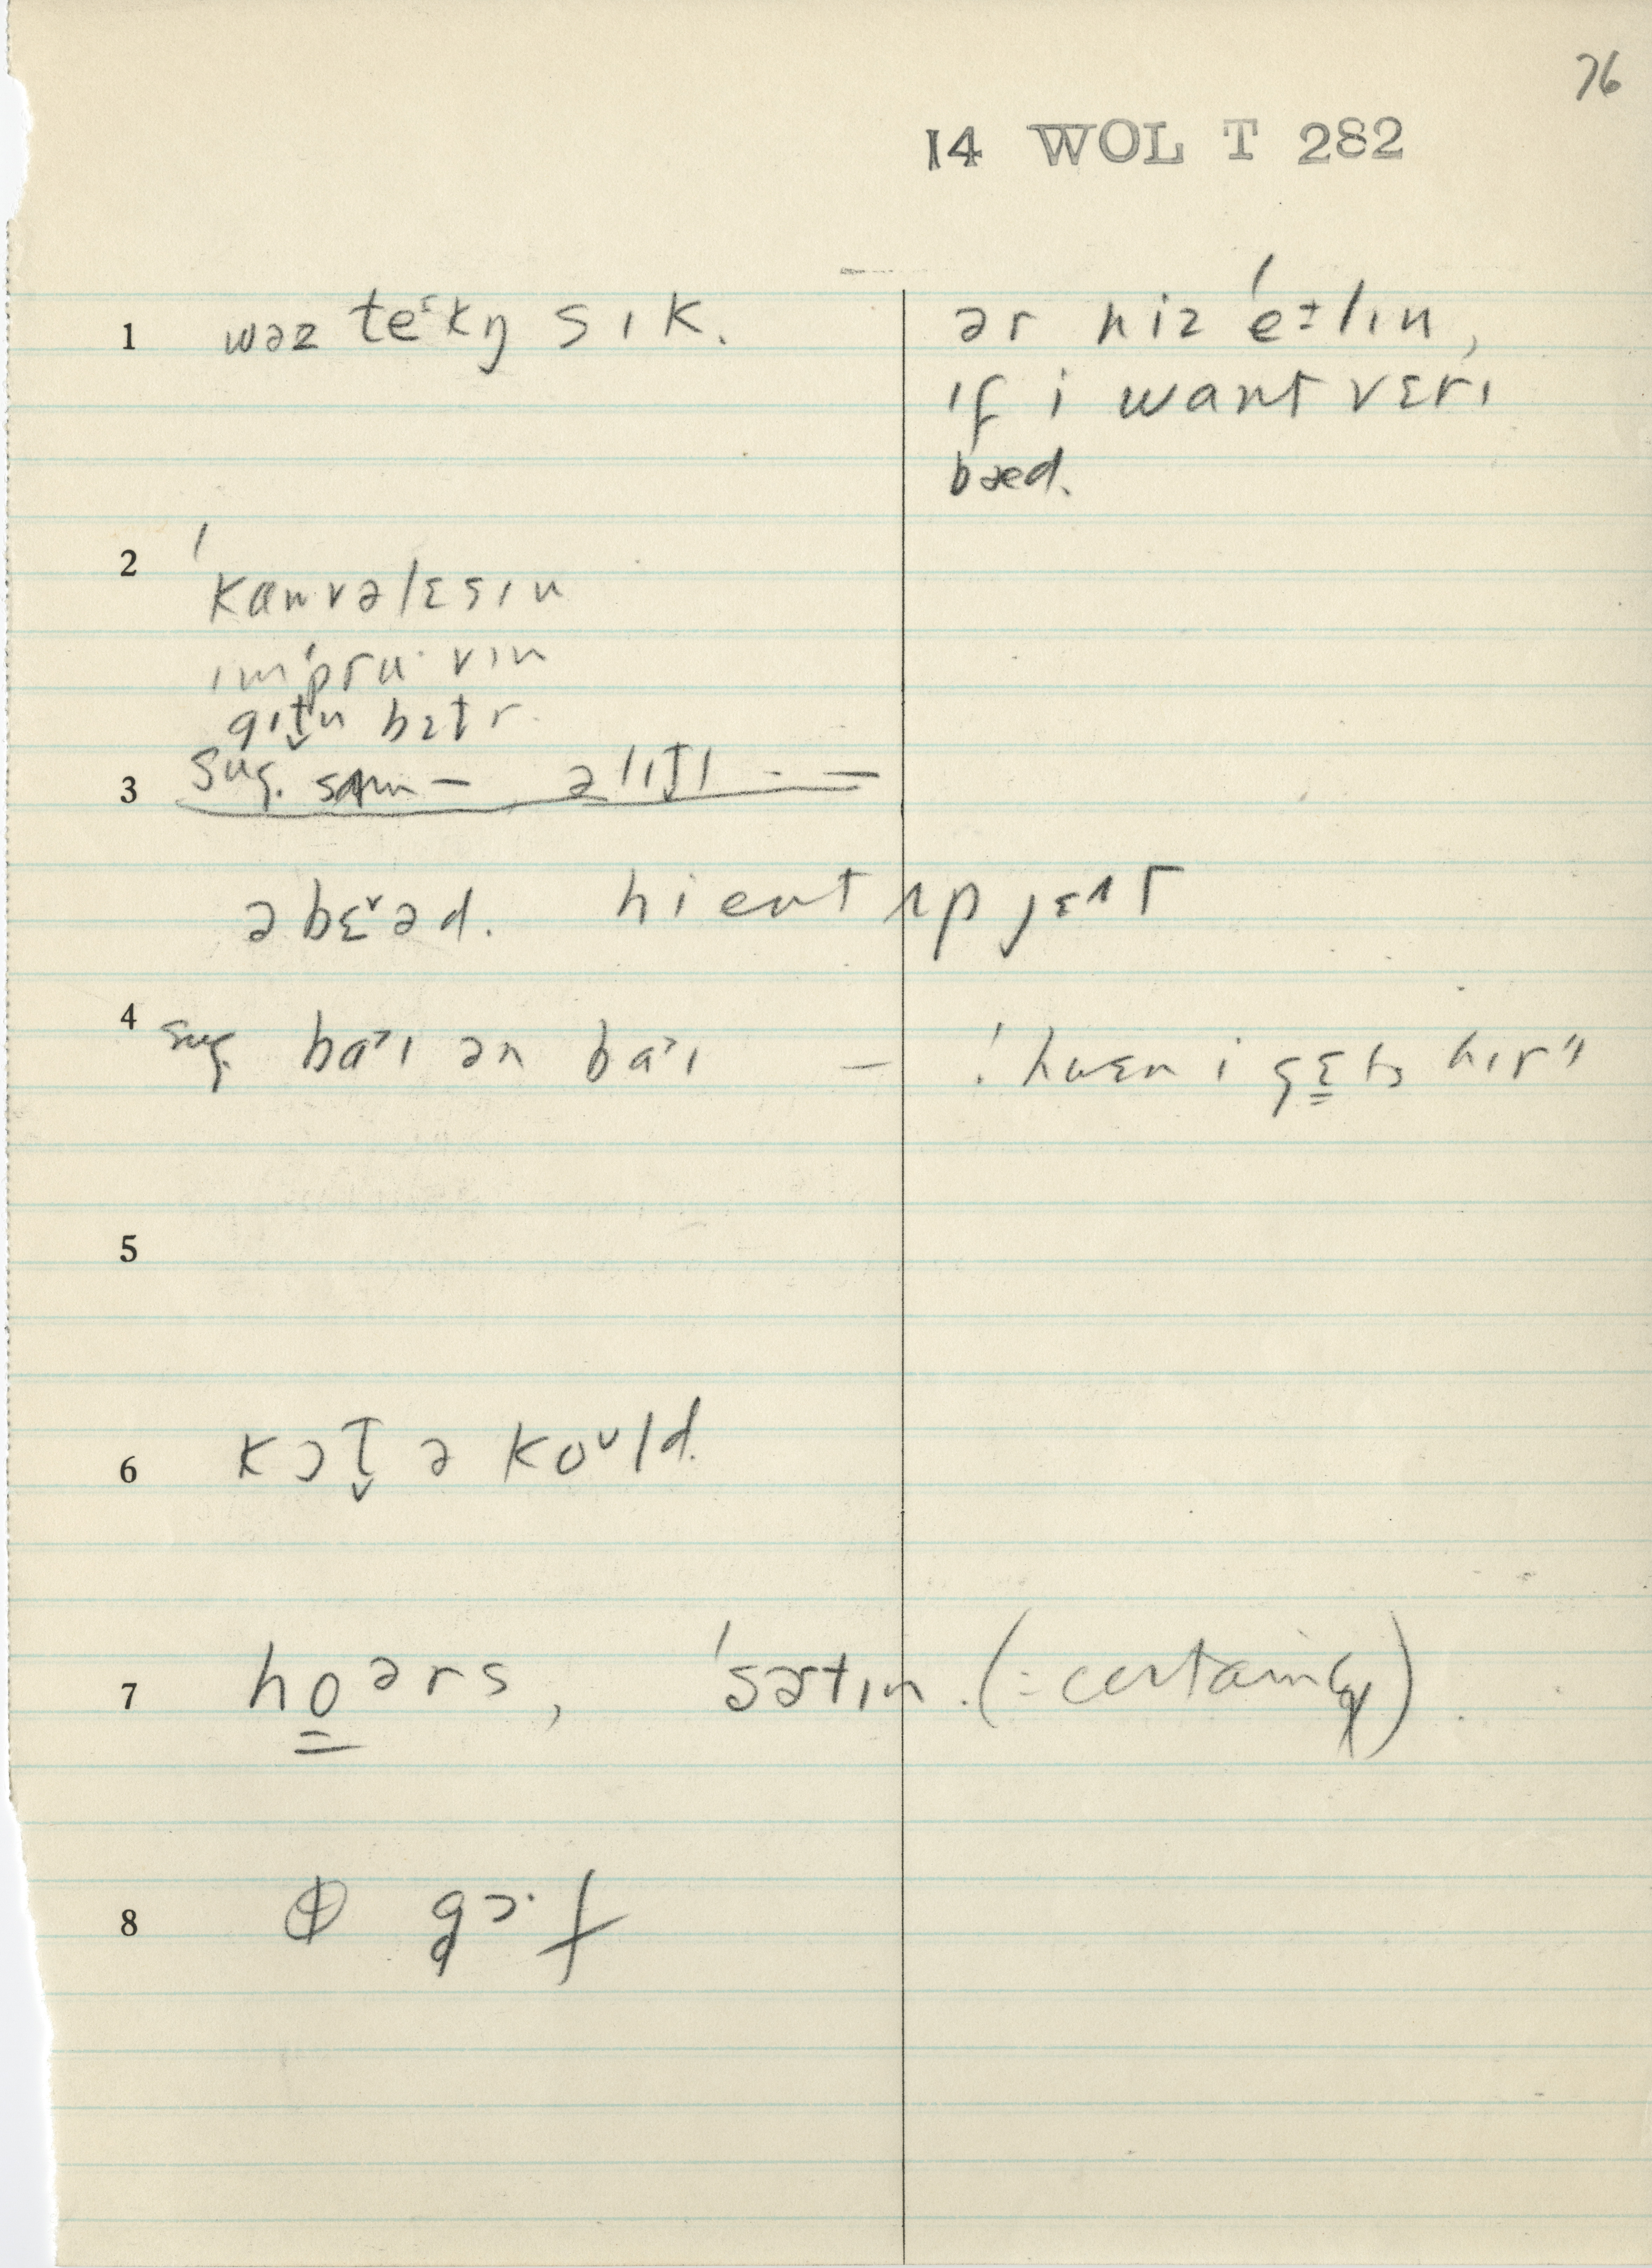 76
14 WOL T 282
1 wəz teᶦkŋ sɪk. ər hiz ˈeᵻlɪn,
ɪf i want vɛrɪ
bæd.
2 ˈkanvəlɛsɪn
ɪmˈpru·vɪn
gɪt̬n bɛtr
3 Sug. sʌm — əlɪt̬ɪ - —
əbɛᵛəd. hi ent ʌp jɛʌt
4 Sug baᶾɪ ən baᶾɪ — ˈhwɛn i gɛts hɪr"
5
6 kɔt̬ ə koᶸld.
7 hoərs, ˈsɚtɪn (= certainly)
8 gɔ·f